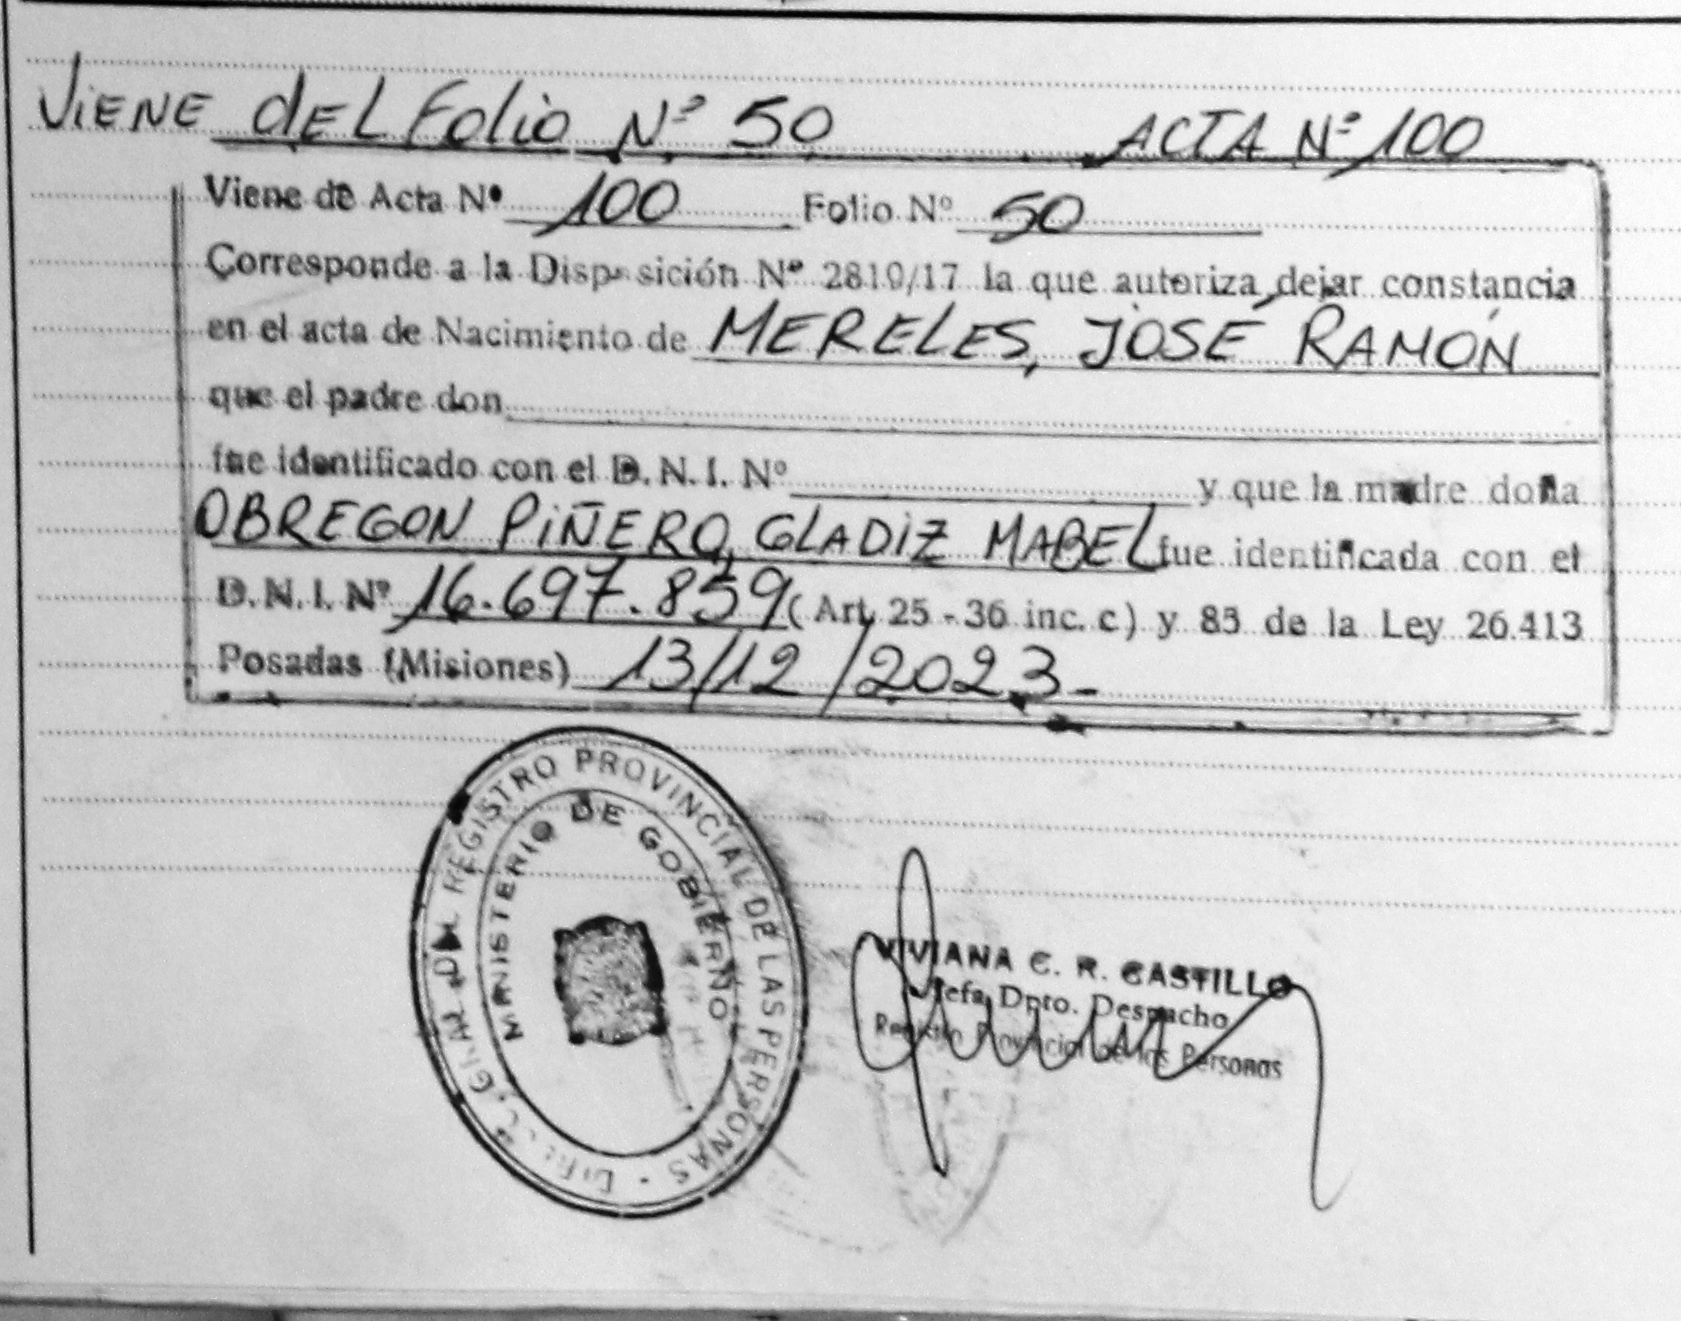 VIENE dEL Folio Nº 50 ACTA Nº 100
Viene de Acta Nº 100 Folio Nº 50
Corresponde a la Disposición Nº 2819/17 la que autoriza dejar constancia
en el acta de Nacimiento de MERELES, JOSÉ RAMÓN
que el padre don
fue identificado con el D. N. I. Nº y que la madre doña
OBREGON PIÑERO, GLADIZ MABEL fue identificada con el
D. N. I. Nº 16.697.859 (Art. 25 - 36 inc. c) y 85 de la Ley 26.413
Posadas (Misiones) 13/12/2023-
GRAL DEL REGISTRO PROVINCIAL DE LAS PERSONAS
MINISTERIO DE GOBIERNO
VIVIANA C. R. CASTILLO
Jefa Dpto. Despacho
Registro Provincial de las Personas